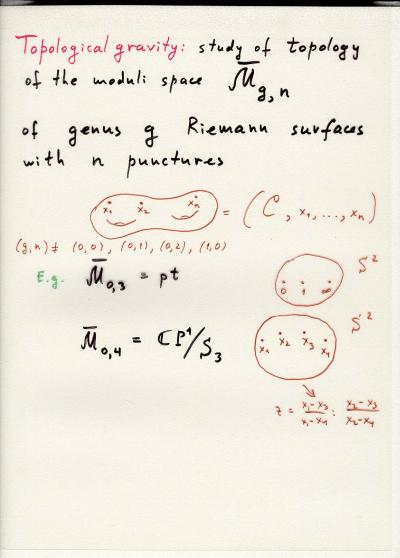 Topological gravity: study of topology
of the moduli space M̄_{g,n}
of genus g Riemann surfaces
with n punctures
x₁ x₂ xₙ = (C, x₁, ..., xₙ)
(g,n) ≠ (0,0), (0,1), (0,2), (1,0)
E.g. M̄₀,₃ = pt
0 1 ∞ S²
M̄₀,₄ = ℂP¹/S₃
x₁ x₂ x₃ x₄ S²
z = (x₁-x₃)/(x₁-x₄) : (x₂-x₃)/(x₂-x₄)